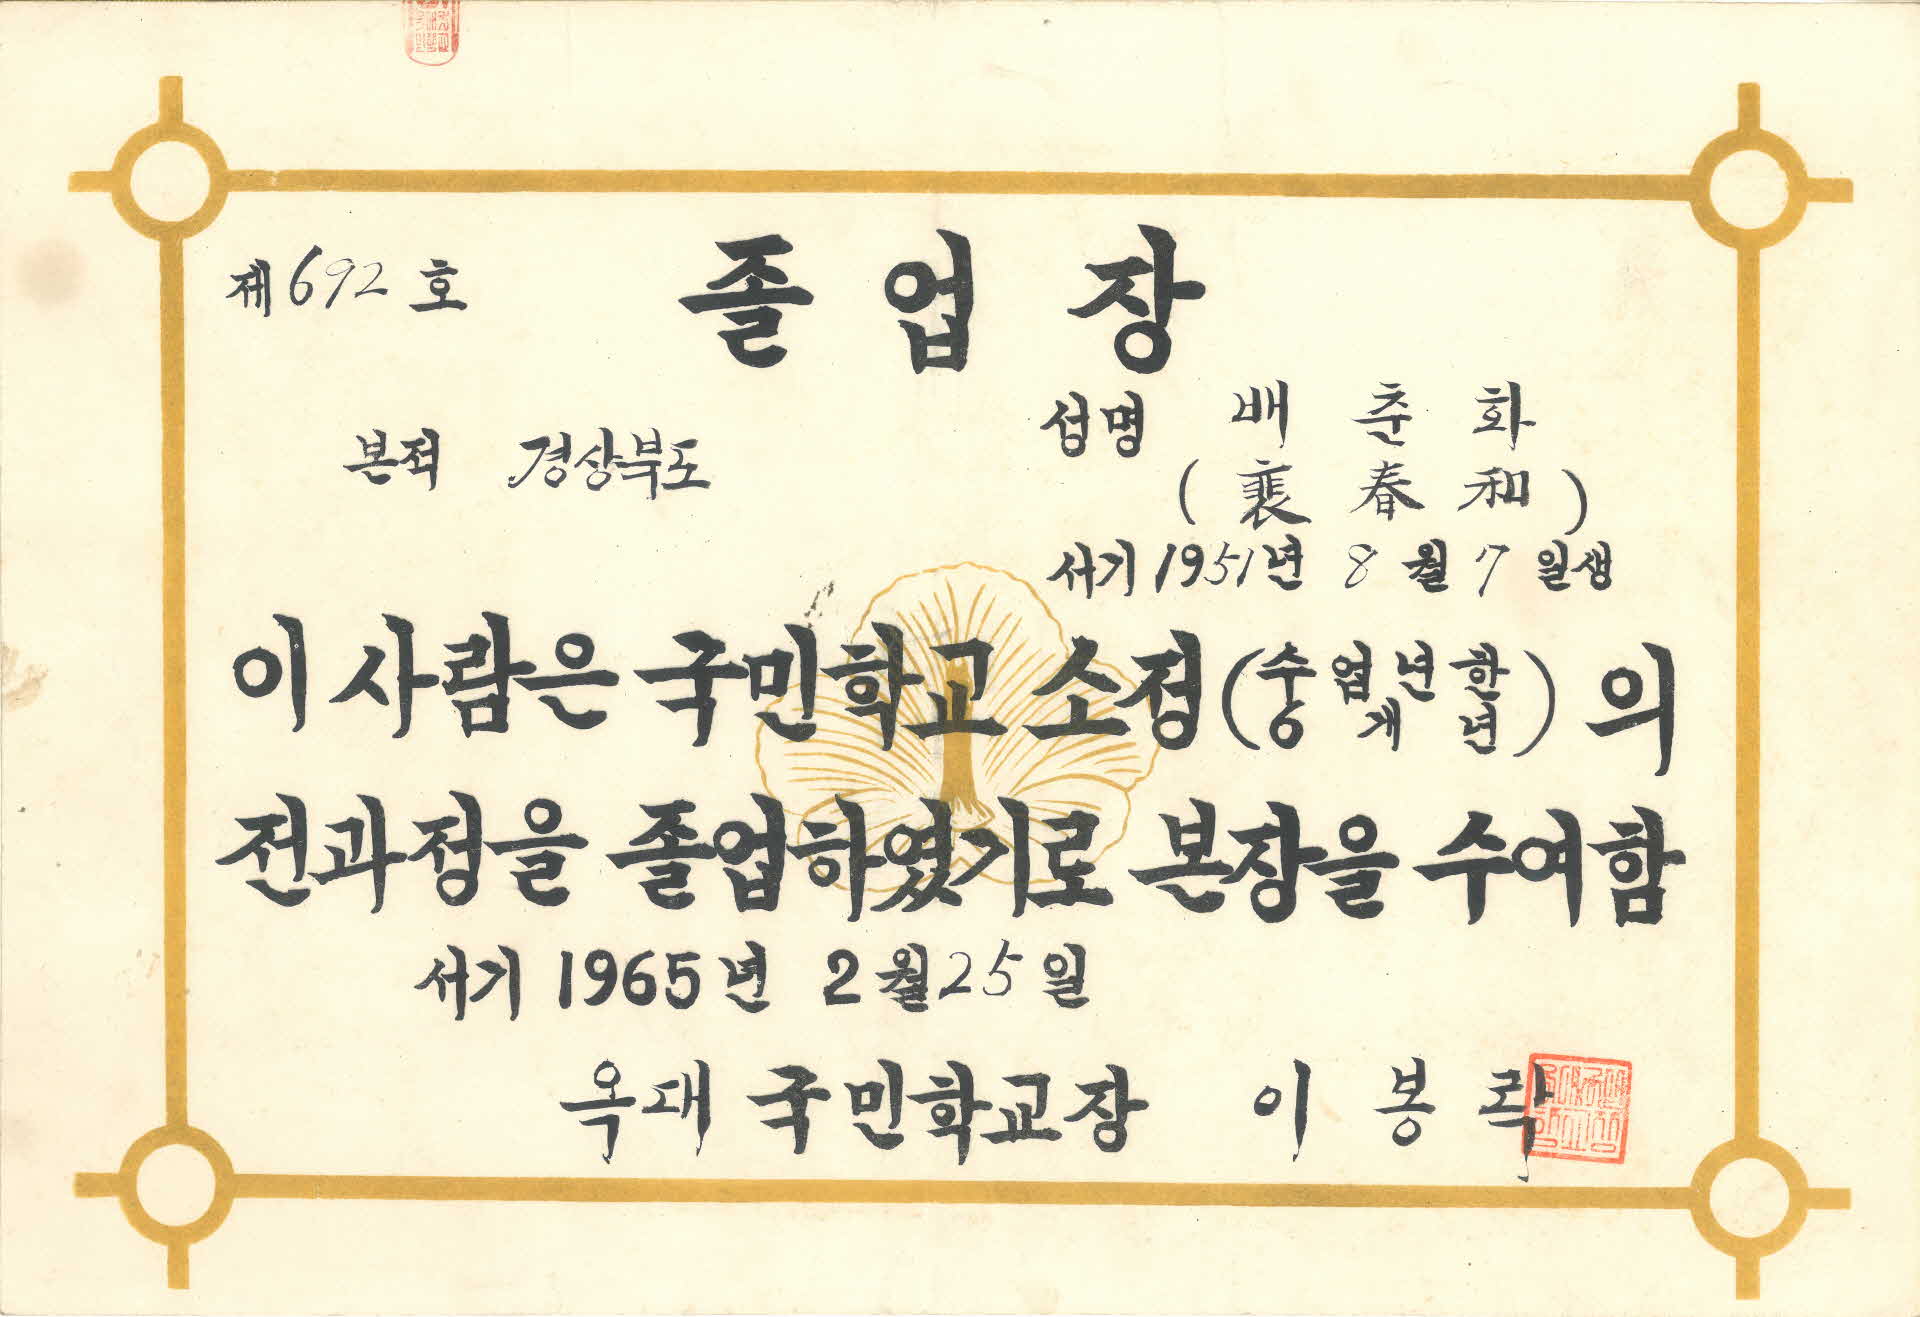 제692호
졸업장
본적 경상북도
성명 배춘화
(裵春和)
서기 1951년 8월 7일생
이 사람은 국민학교 소정(수업년한 6개년)의
전과정을 졸업하였기로 본장을 수여함
서기 1965년 2월 25일
옥대국민학교장 이봉락